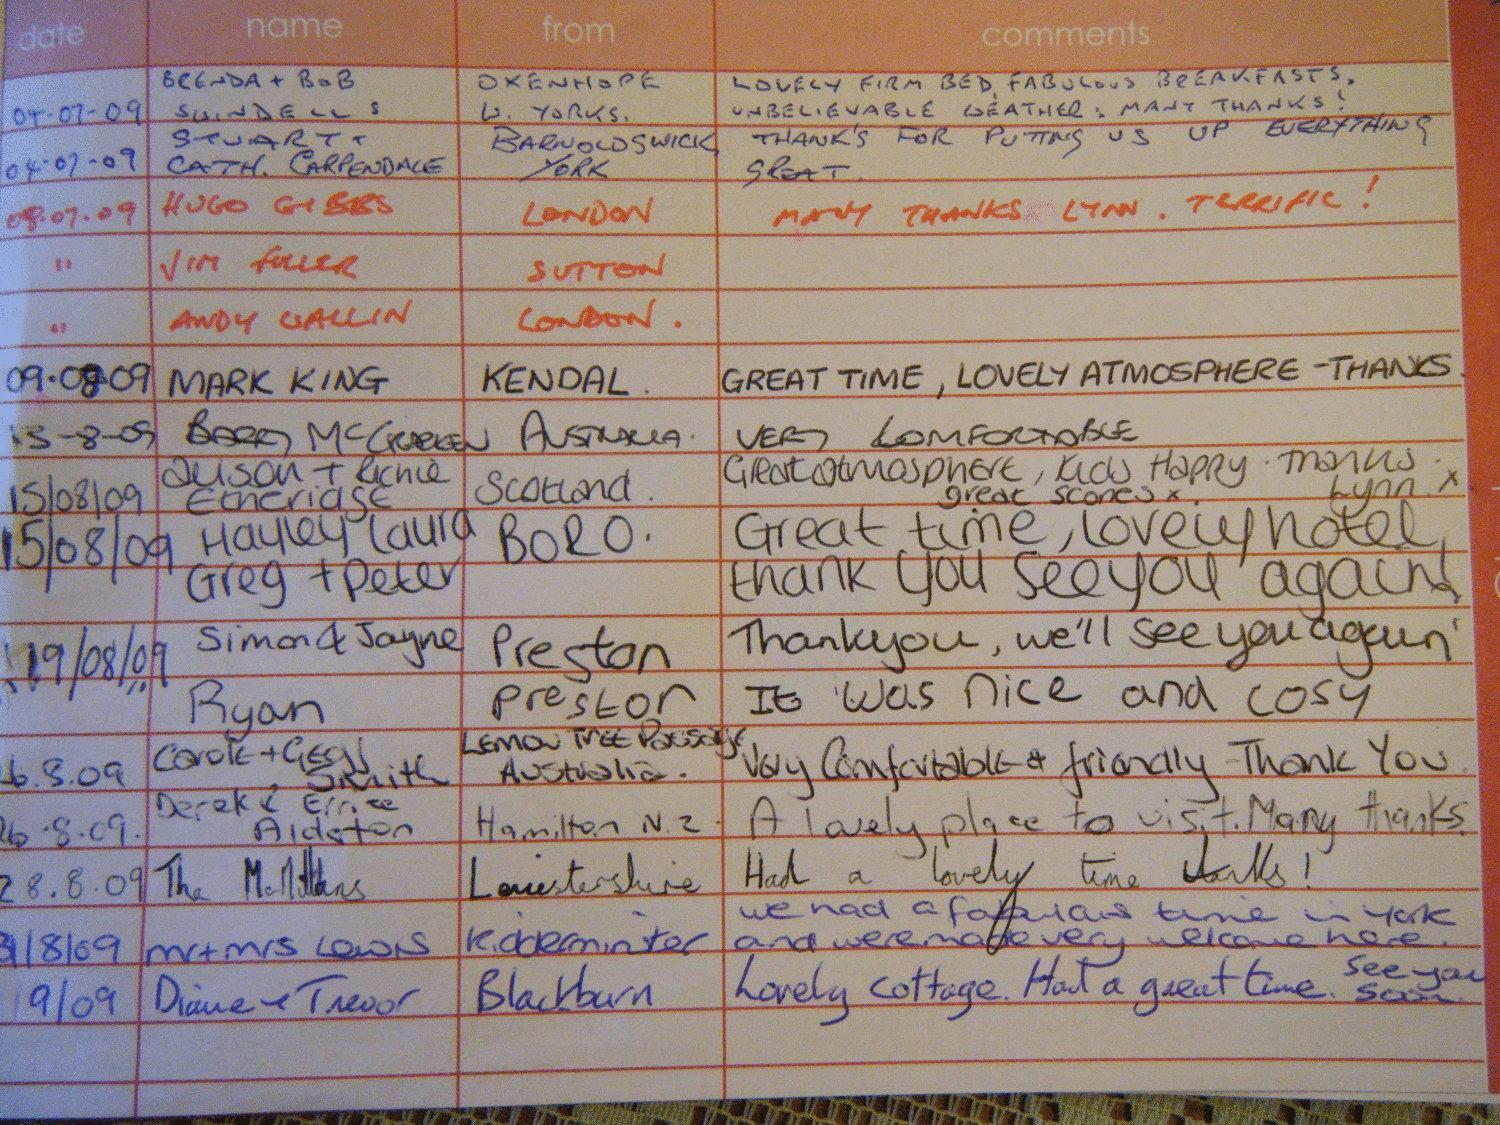 date name from comments
BRENDA + BOB OXENHOPE LOVELY FIRM BED, FABULOUS BREAKFASTS,
04-07-09 SWINDELLS W. YORKS. UNBELIEVABLE WEATHER. MANY THANKS!
STUART + BARNOLDSWICK THANK'S FOR PUTTING US UP EVERYTHING
04-07-09 CATH. CARPENDALE YORK GREAT.
08.07.09 HUGO GIBBS LONDON MANY THANKS LYNN. TERRIFIC!
" JIM FULLER SUTTON
" ANDY WALLIN LONDON.
09.08.09 MARK KING KENDAL. GREAT TIME, LOVELY ATMOSPHERE - THANKS.
13-8-09 BARRY AUSTRALIA. VERY COMFORTABLE
Alison + Richie Great atmosphere, Kids Happy. Thanks
15/08/09 Etheridge Scotland. great scones x. Lynn. x
15/08/09 Hayley Laura BORO. Great time, lovely hotel,
Greg + Peter thank you see you again!
19/08/09 Simon & Jayne Preston Thankyou, we'll see you again'
Ryan Preston It was nice and cosy
Carole + LEMON TREE Passage
6.8.09 Smith Australia. Very Comfortable & friendly - Thank You.
Derek &
26.8.09. Hamilton N.Z. A lovely place to visit. Many thanks.
28.8.09 The McMillans Leicestershire Had a lovely time thanks!
we had a fabulous time in York
31/8/09 mr + mrs Lewis Kidderminster and were made very welcome here.
9/09 Diane & Trevor Blackburn Lovely cottage. Had a great time. See you
soon.